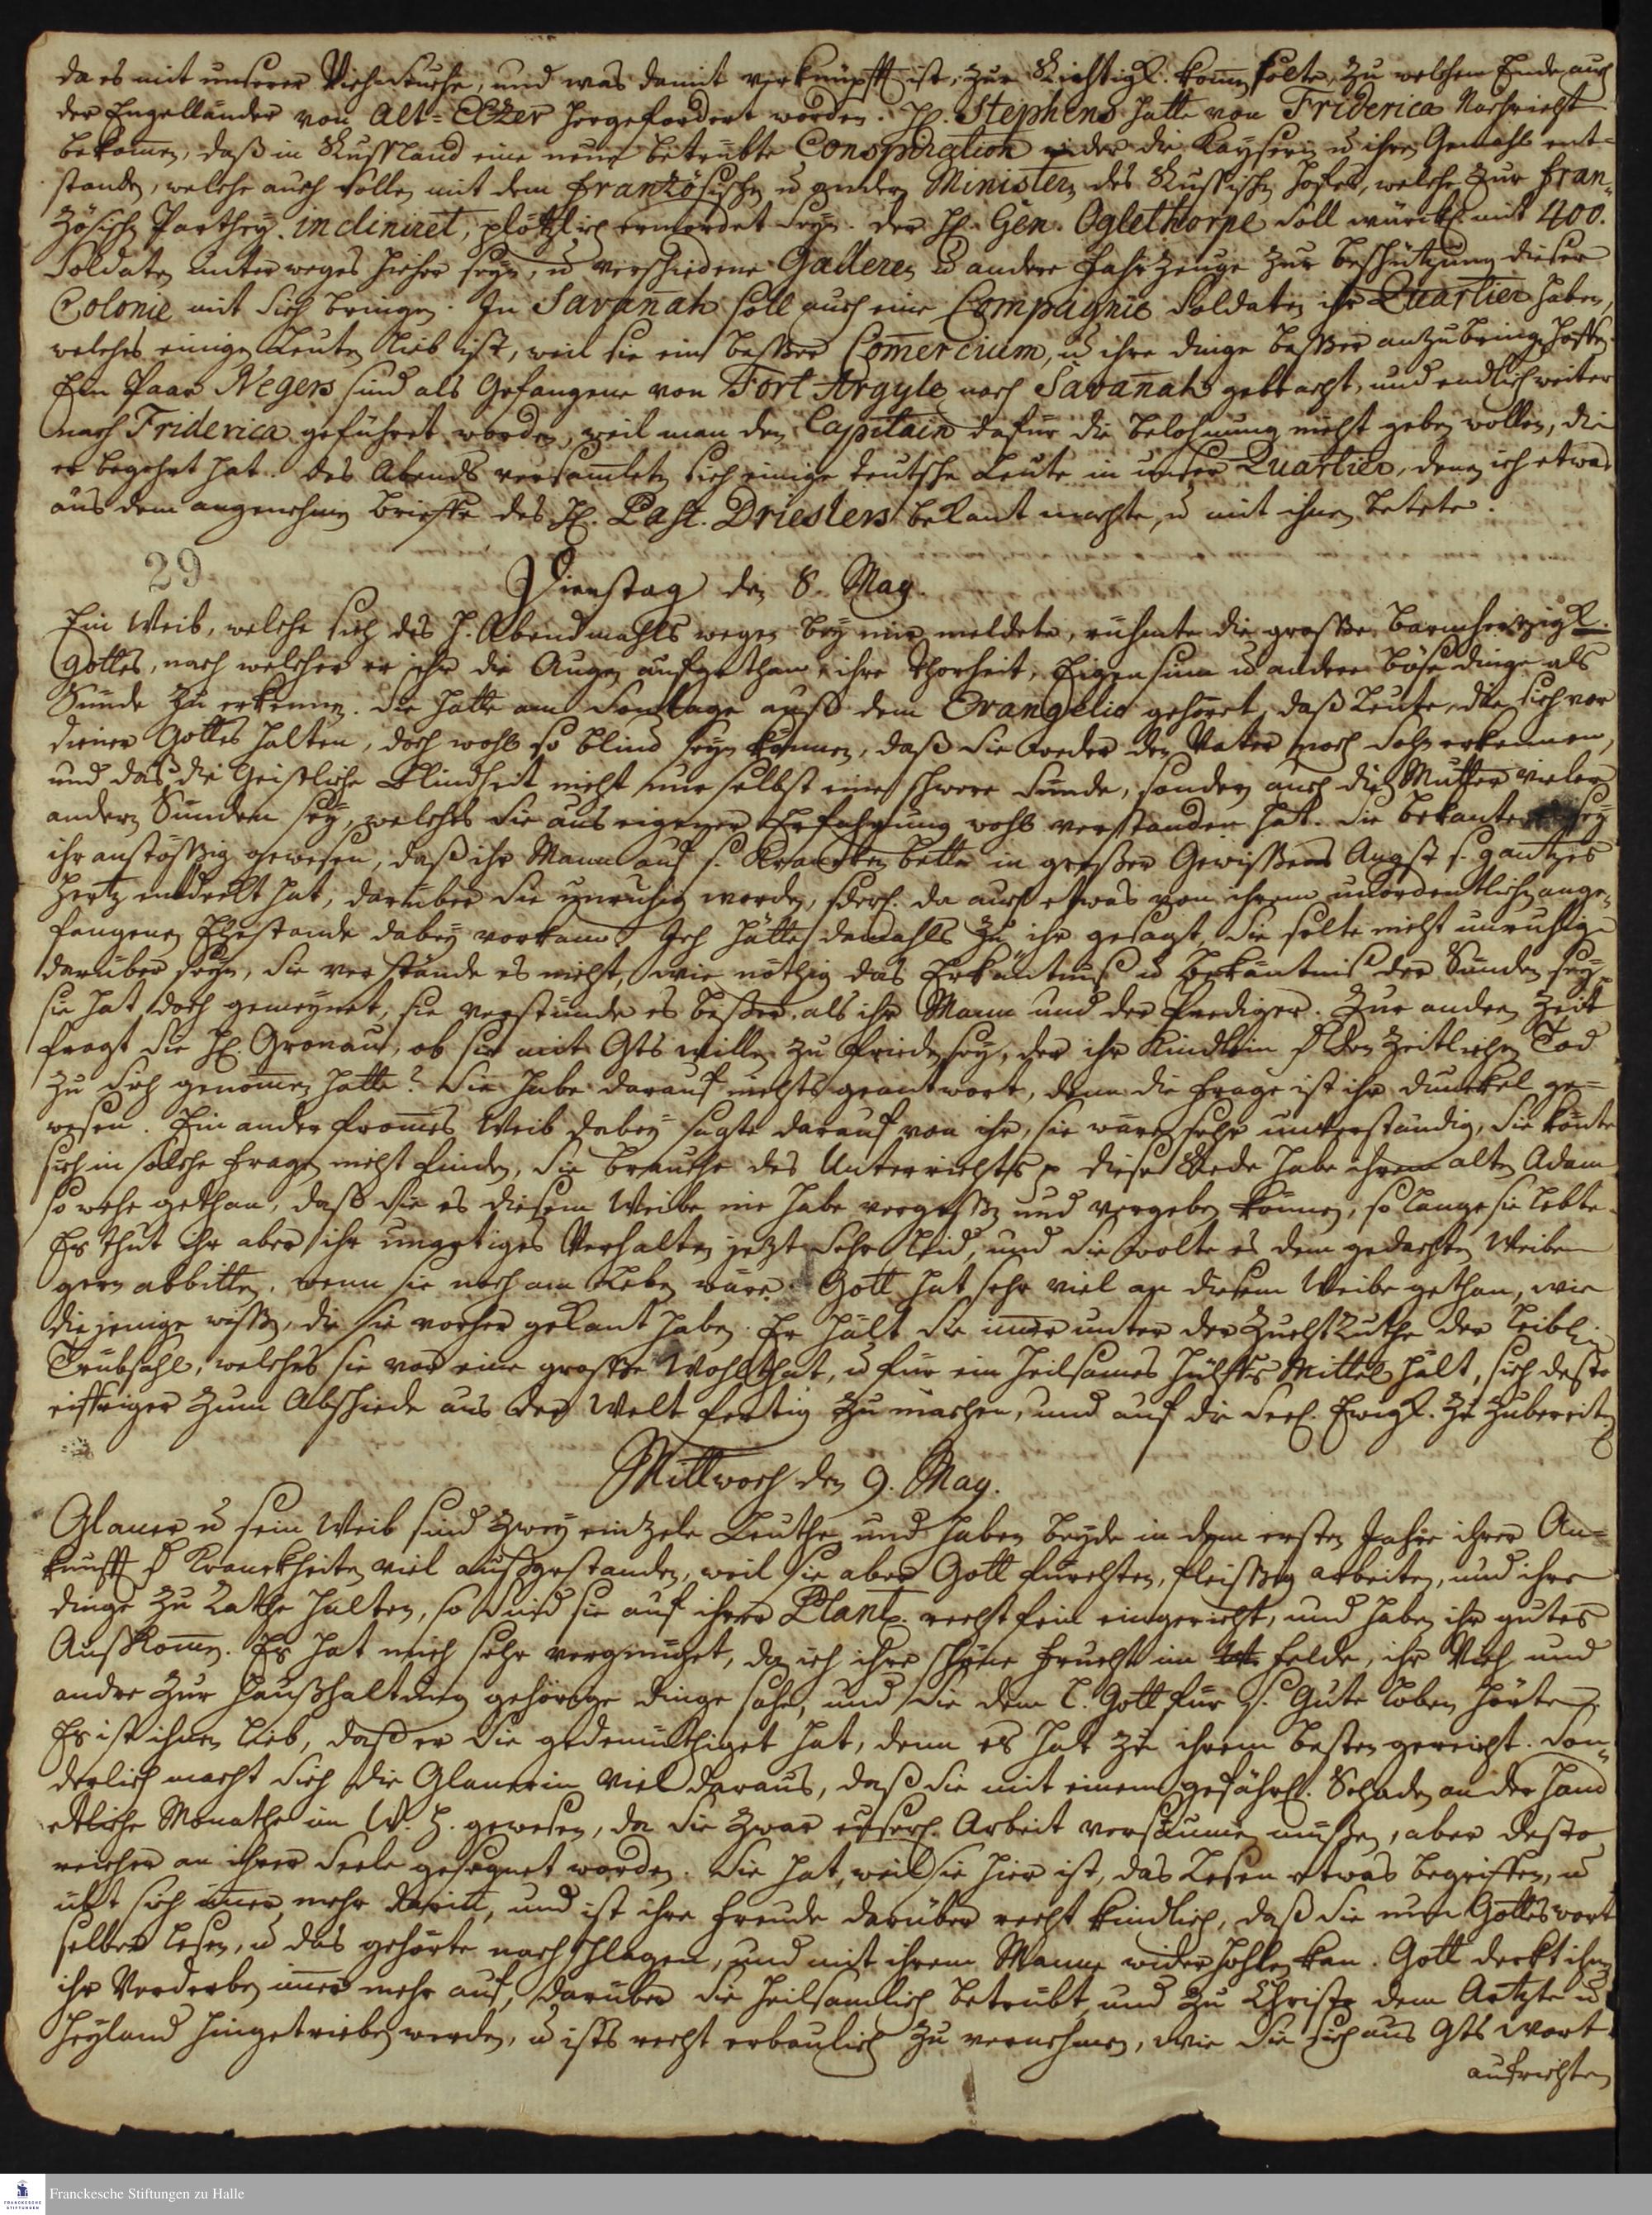 da es mit unserer Viehseuche, und was damit verknüpfft ist, zur Richtigk. komen solte, zu welchem Ende auch
der Engelländer von Alt-Ebzer hergefordert worden. H. Stephens hatte von Friderica Nachricht
bekomen, daß in Russland eine neue betrübte Conspiration wider die Kayserin u ihren Gemahl ent-
standen, welche auch sollen mit dem französischen u andern Ministern des Russischen Hofes, welche zur fran-
zösischen Parthey incliniret, plötzlich ermordet seyn. Der H. Gen. Oglethorpe soll würckl. mit 400.
Soldaten unterweges hieher seyn, u verschiedene Galleren u andere Fahrzeuge zur Beschützung dieser
Colonie mit sich bringen. In Savanah soll auch eine Compagnie Soldaten ihr Quartier haben,
welches einigen Leuten lieb ist, weil sie ein besser Comercium, u ihre Dinge besser anzubringen hoffen.
Ein Paar Negers sind als Gefangene von Fort Argyle nach Savanah gebracht, und endlich weiter
nach Friderica geführet worden, weil man den Capitain dafür die Belohnung nicht geben wollen, die
er begehrt hat. Des Abends versamleten sich einige teutsche Leute in unser Quartier, denen ich etwas
aus dem angenehmen Brieffe des H. Past. Driesslers bekant machte, u mit ihnen betete.
29
Dienstag den 8. May.
Ein Weib, welche sich des H. Abendmahls wegen bey mir meldete, rühmte die grosse Barmherzigk.
Gottes, nach welcher er ihr die Augen aufgethan, ihre Thorheit, Eigensinn u andere böse Dinge als
Sünde zu erkennen. Sie hatte am Sontage auß dem Evangelio gehöret, daß Leute, die sich vor
Diener Gottes halten, doch wohl so blind seyn können, daß sie weder den Vater noch Sohn erkennen,
und daß die Geistliche Blindheit nicht nur selbst eine schwere Sünde, sondern auch die Mutter vieler
andern Sünden sey, welches sie aus eigener Erfahrung wohl verstanden hat. Sie bekante es sey
ihr anstößig gewesen, daß ihr Mann auf s. Krancken bette in grosser Gewissens Angst s. gantzes
Hertz endeckt hat, darüber sie unruhig worden, sderl. da auch etwas von ihrem unordentlichen ange-
fangenen Ehestande dabey vorkam. Ich hätte damahls zu ihr gesagt, sie solte nicht unruhig
darüber seyn, sie verstünde es nicht, wie nöthig das Erkäntniß u Bekäntniß der Sünden sey,
sie hat doch gemeynet, sie verstünde es besser, als ihr Mann und der Prediger. Zur andern Zeit
fragt sie H. Gronau, ob sie mit Gts willen zu frieden sey, der ihr Kindlein d. den zeitlichen Tod
zu sich genomen hatte? Sie habe darauf nichts geantwort, denn die Frage ist ihr dunckel ge-
wesen. Ein ander fromes Weib dabey sagte darauf von ihr, sie wäre sehr unverständig, sie könte
sich in solche Fragen nicht finden, sie brauche des Unterrichts p diese Rede habe ihrem alten Adam
so wehe gethan, daß sie es diesem Weibe nie habe vergessen und vergeben können, so lange sie lebte.
Es thut ihr aber ihr ungütiges Verhalten jezt sehr leid, und sie wolte es dem gedachten Weibe
gern abbitten, wenn sie noch am Leben wäre. Gott hat sehr viel an diesem Weibe gethan, wie
diejenige wissen, die sie vorher gekant haben. Er hält sie imer unter der Zuchtruthe der leibl.
Trübsahl, welches sie vor eine grosse Wohlthat, u für ein heilsames Hülffs Mittel hält, sich desto
eiffriger zum Abschiede aus der Welt fertig zu machen, und auf die seel. Ewigk. zu zubereiten
Mittwoch den 9. May.
Glaner u sein Weib sind zwey einzele Leuthe und haben beyde in dem ersten Jahre ihrer An-
kunfft d Kranckheiten viel außgestanden, weil sie aber Gott fürchten, fleissig arbeiten, und ihre
Dinge zu Rathe halten, so sind sie auf ihrer Plant. recht fein eingericht, und haben ihr gutes
Außkomen. Es hat mich sehr vergnüget, da ich ihre schöne Frucht im Felde, ihr Vieh und
andre zur Haußhaltung gehörige Dinge sahe, und sie dem l. Gott für s. Güte loben hörte.
Es ist ihnen lieb, daß er sie gedemüthiget hat, denn es hat zu ihrem besten gereicht. Son-
derlich macht sich die Glanerin viel daraus, daß sie mit einem gefährl. Schaden an der Hand
etliche Monathe im W. H. gewesen, da sie zwar äusserl. Arbeit versäumen müssen, aber desto
reicher an ihrer Seele gesegnet worden. Sie hat, weil sie hier ist, das Lesen etwas begriffen, u
übt sich imer mehr darin, und ist ihre Freude darüber recht kindlich, daß sie nun Gottes wort
selber lesen, u das gehörte nachschlagen, und mit ihrem Manne widerhohlen kan. Gott deckt ihnen
ihr Verderben imer mehr auf, darüber sie heilsamlich betrübt und zu Christo dem Artzte u
Heyland hingetrieben werden, u ists recht erbaulich zu vernehmen, wie sie sich aus Gts wort
aufrichten
FRANCKESCHE STIFTUNGEN
Franckesche Stiftungen zu Halle